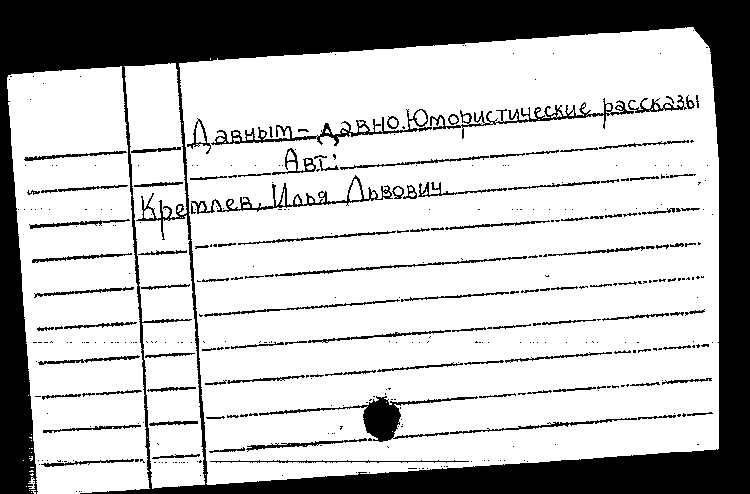 Давным-давно. Юмористические рассказы
Авт.:
Кремлев, Илья Львович.